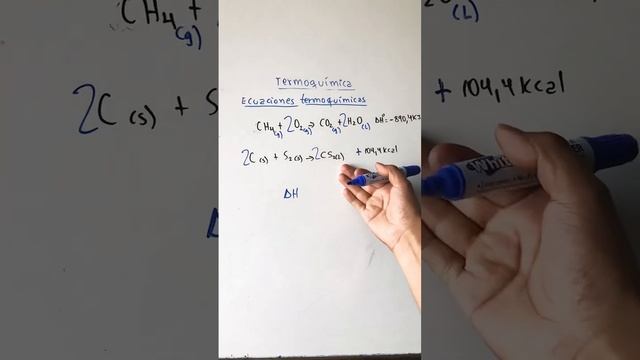 Termoquímica
Ecuaciones termoquímicas
CH4(g) + 2O2(g) → CO2(g) + 2H2O(L) ΔH°= -890,4KJ
2C(s) + S2(s) → 2CS2(l) + 104,4 kcal
ΔH